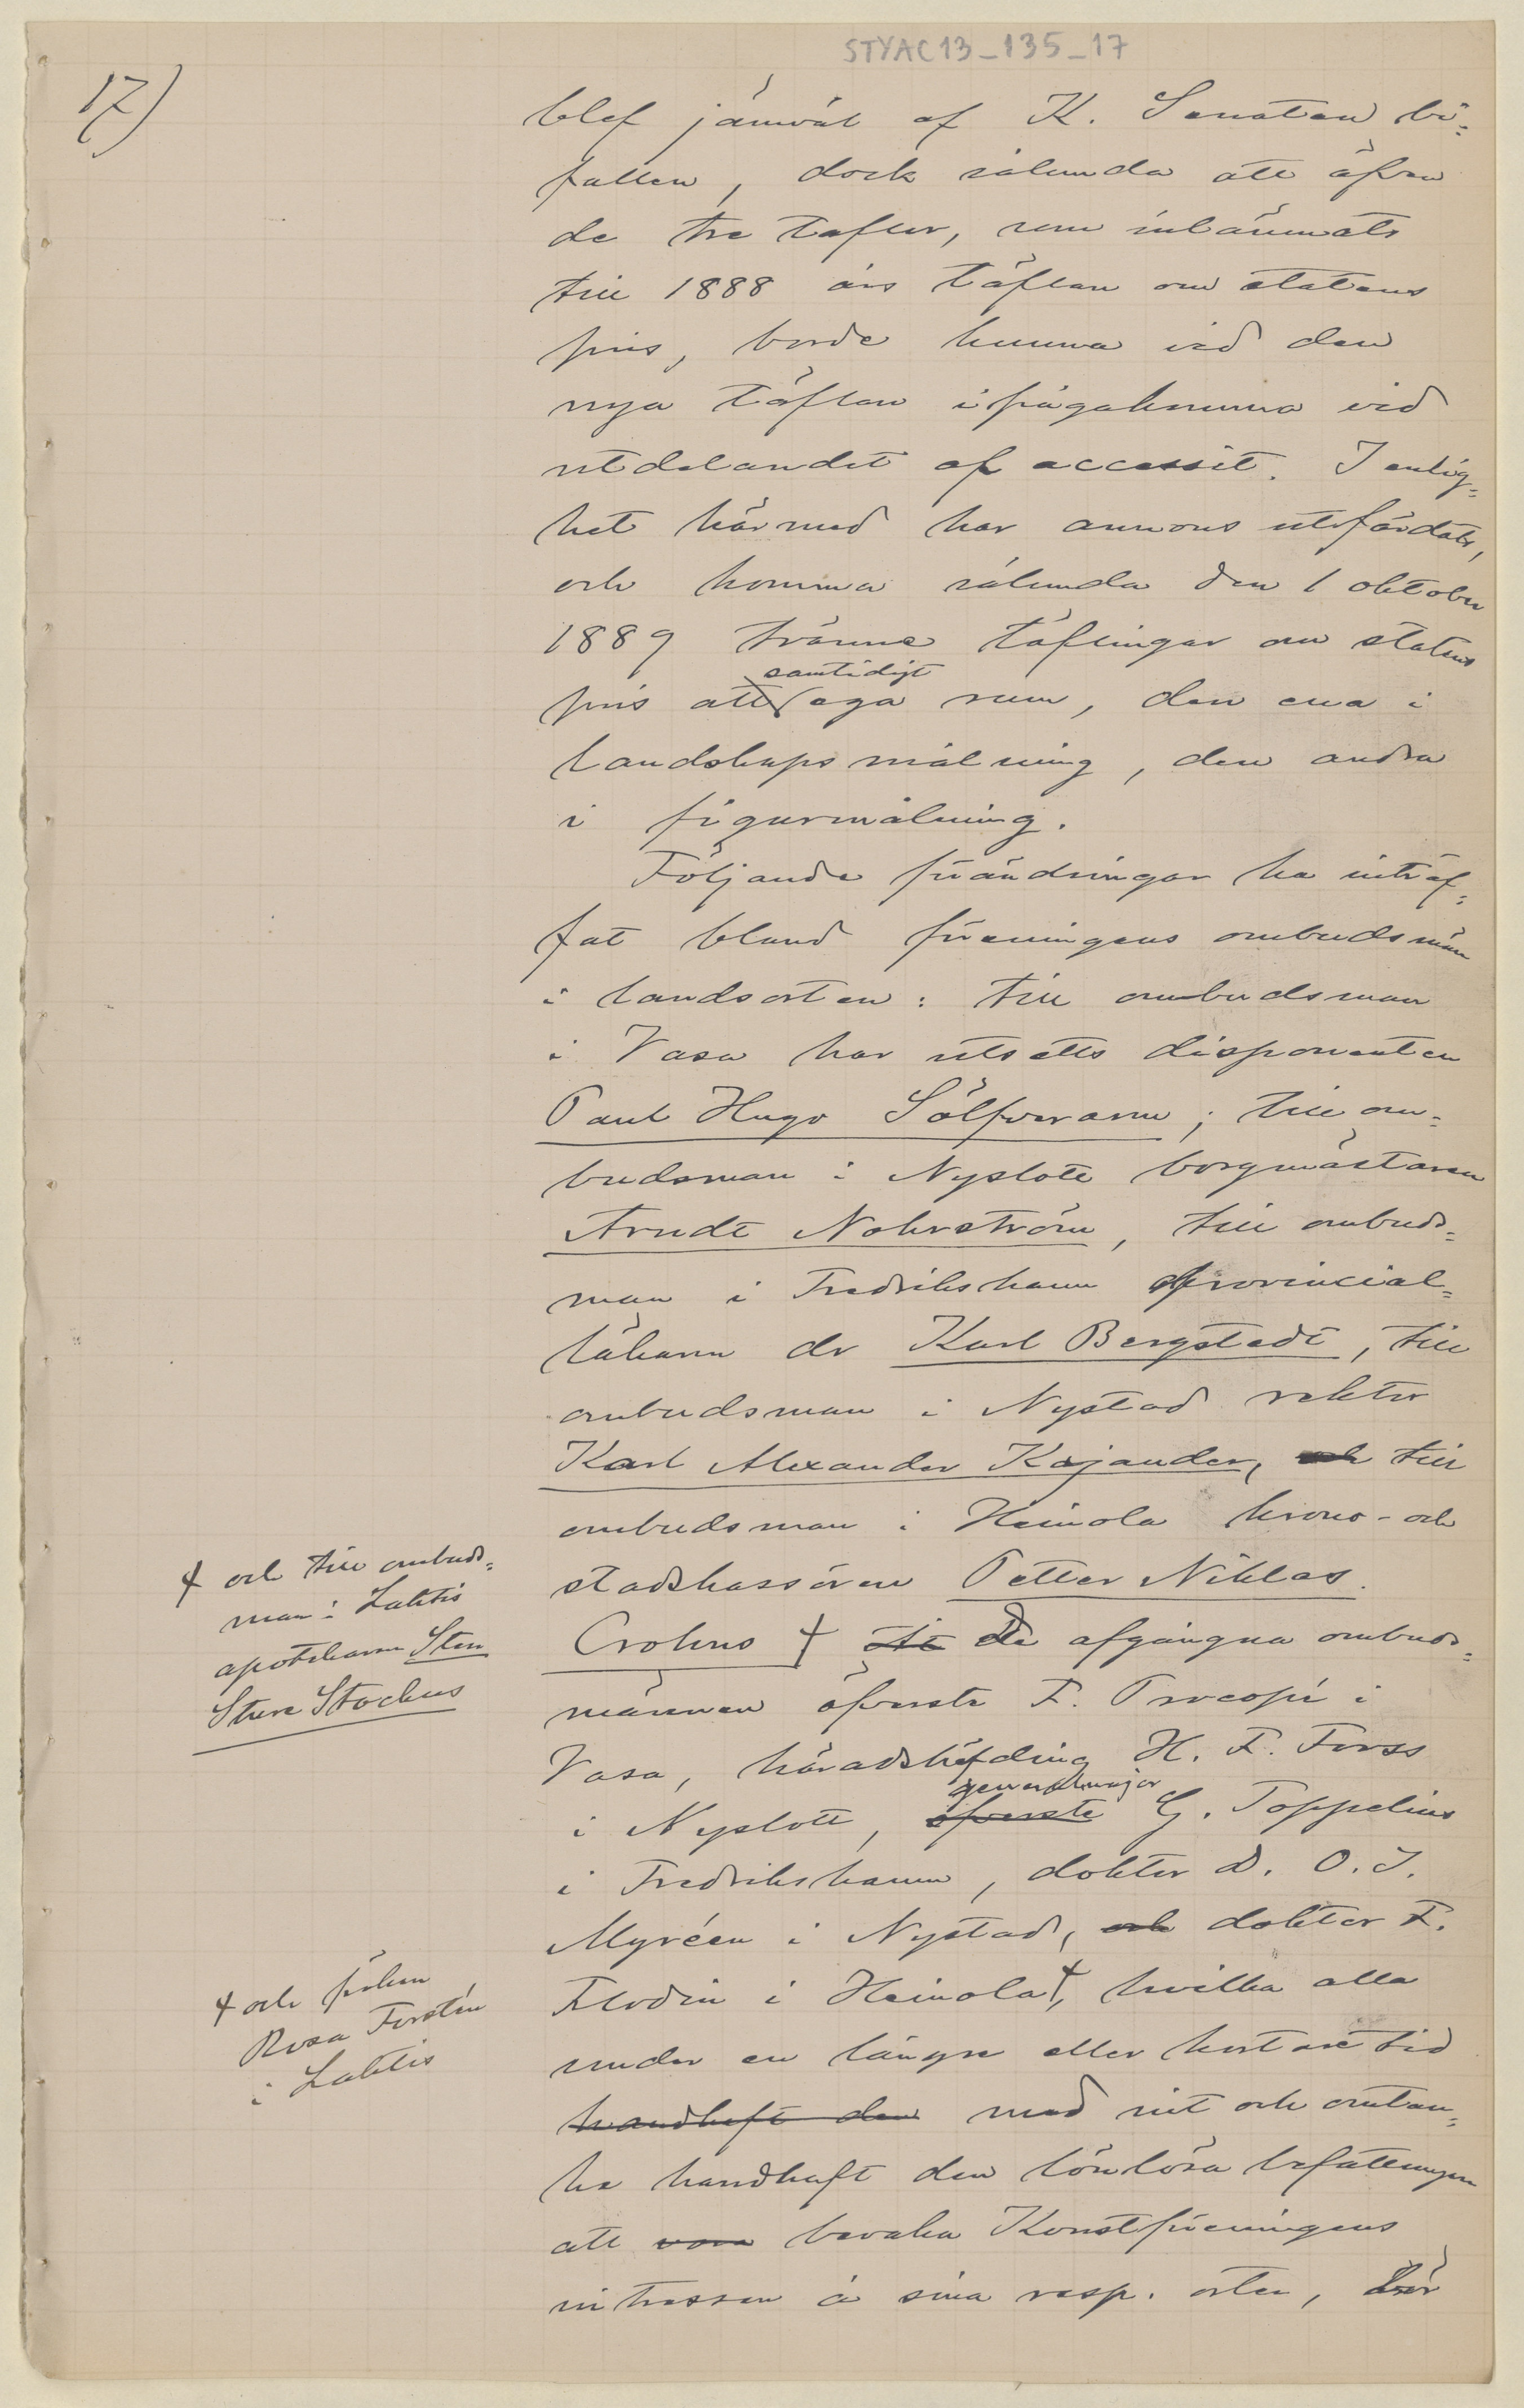 STYAC13_135_17
17)
blef jämväl af K. Senaten bi-
fallen, dock sålunda att äfven
de tre taflor, som inlämnats
till 1888 års täflan om statens
pris, borde kunna vid den
nya täflan ifrågakomma vid
utdelandet af accessit. I enlig-
het härmed har annons utfärdats,
och komma sålunda den 1 oktober
1889 tvänne täflingar om statens
samtidigt
pris att ega rum, den ena i
landskapsmålning, den andra
i figurmålning.
Följande förändringar ha inträf-
fat bland föreningens ombudsmän
i landsorten: till ombudsman
i Vasa har utsetts disponenten
Paul Hugo Sölfverarm; till om-
budsman i Nyslott borgmästaren
Arndt Nohrström, till ombuds-
man i Fredrikshamn provincial-
läkaren dr Karl Bergstedt, till
ombudsman i Nystad rektor
Karl Alexander Kajander, och till
ombudsman i Heinola krono- och
stadskassören Petter Niklas
Crohns † De afgångna ombuds-
† och till ombuds-
man i Lahtis
apotekaren Sten
Sture Stockus
männen öfverste F. Procopé i
Vasa, häradshöfding H. F. Forss
generalmajor
i Nyslott, öfverste G. Toppelius
i Fredrikshamn, doktor D. O. I.
Myréen i Nystad, och doktor F.
Flodin i Heinola †, hvilka alla
† och fröken
Rosa Forstén
i Lahtis
under en längre eller kortare tid
handhaft den med nit och omtan-
ke handhaft den lönlösa befattningen
att vara bevaka Konstföreningens
intressen å sina resp. orter, bör